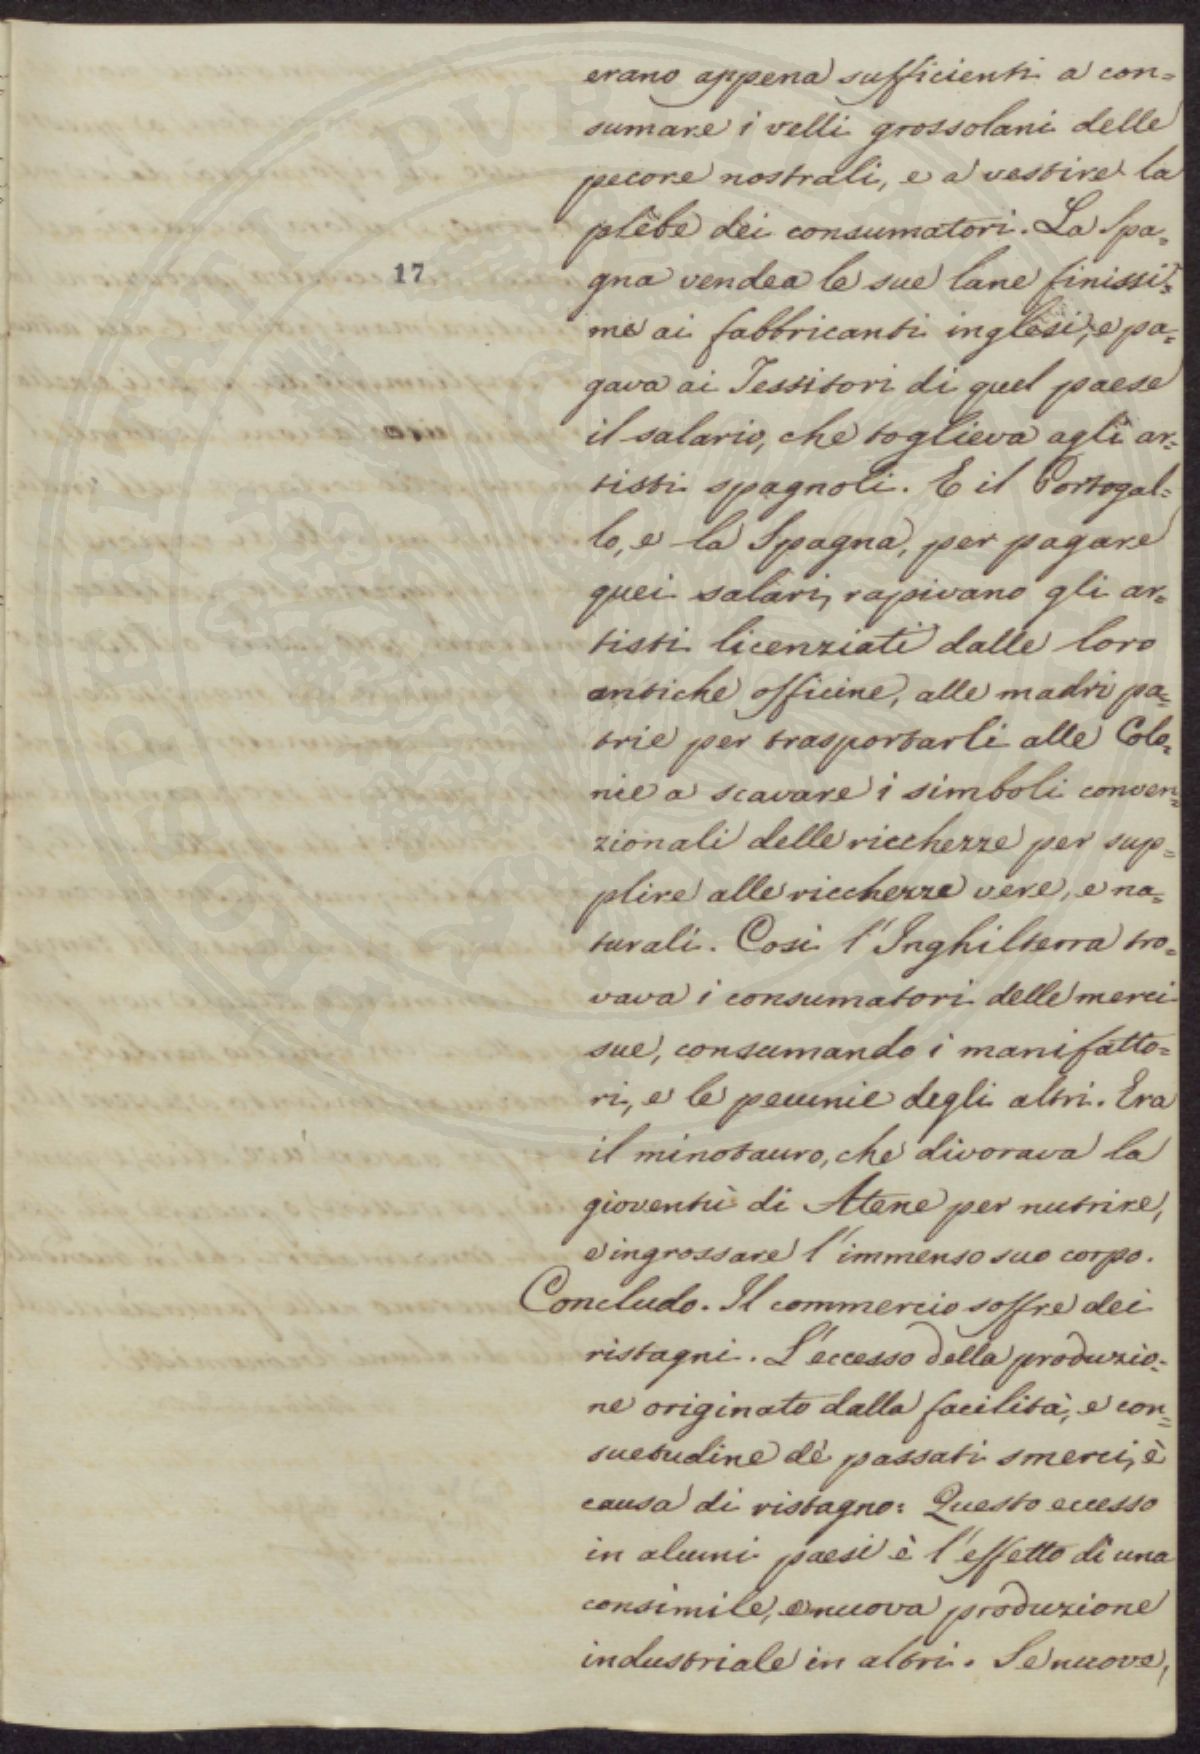 erano appena sufficienti a con=
sumare i velli grossolani delle
pecore nostrali, e a vestire la
plebe dei consumatori. La Spa=
17
gna vendea le sue lane finissi=
me ai fabbricanti inglesi, e pa=
gava ai Tessitori di quel paese
il salario, che toglieva agli ar=
tisti spagnoli. E il Portogal=
lo, e la Spagna, per pagare
quei salari, rapivano gli ar=
tisti licenziati dalle loro
antiche officine, alle madri pa=
trie per trasportarli alle Colo=
nie a scavare i simboli conven=
zionali delle ricchezze per sup=
plire alle ricchezze vere, e na=
turali. Così l'Inghilterra tro=
vava i consumatori delle merci
sue, consumando i manifatto=
ri, e le pecunie degli altri. Era
il minotauro, che divorava la
gioventù di Atene per nutrire,
e ingrossare l'immenso suo corpo.
Concludo. Il commercio soffre dei
ristagni. L'eccesso della produzio=
ne originato dalla facilità, e con=
suetudine de' passati smerci, è
causa di ristagno: Questo eccesso
in alcuni paesi è l'effetto di una
consimile, e nuova produzione
industriale in altri. Le nuove,